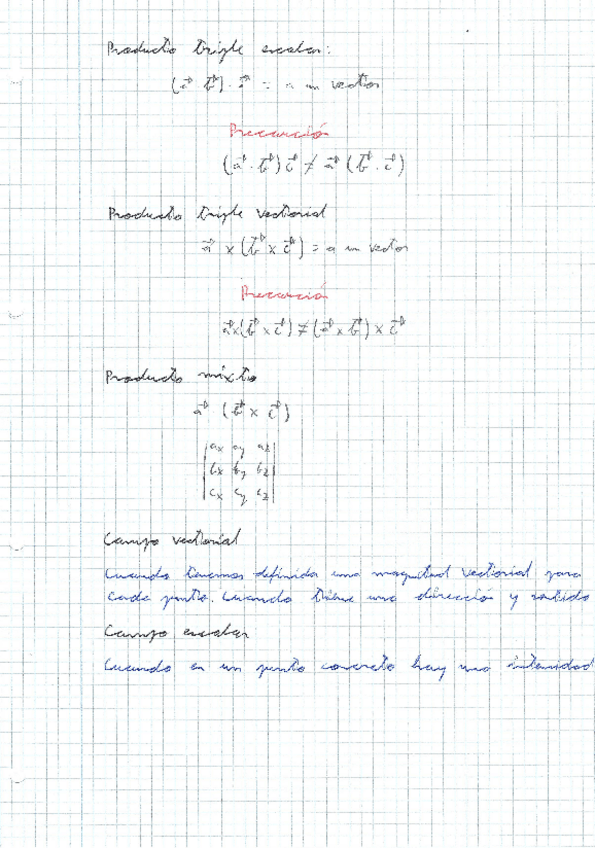 Producto triple escalar:
(a⃗ b⃗) · a⃗ = a un vector
Precaución
(a⃗ · b⃗) c⃗ ≠ a⃗ (b⃗ · c⃗)
Producto triple vectorial
a⃗ × (b⃗ × c⃗) = a un vector
Precaución
a⃗×(b⃗ × c⃗) ≠ (a⃗ × b⃗) × c⃗
Producto mixto
a⃗ (b⃗ × c⃗)
|ax ay az|
|bx by bz|
|cx cy cz|
Campo vectorial
Cuando tenemos definida una magnitud vectorial para
cada punto. Cuando tiene una dirección y sentido
Campo escalar
Cuando en un punto concreto hay una intensidad